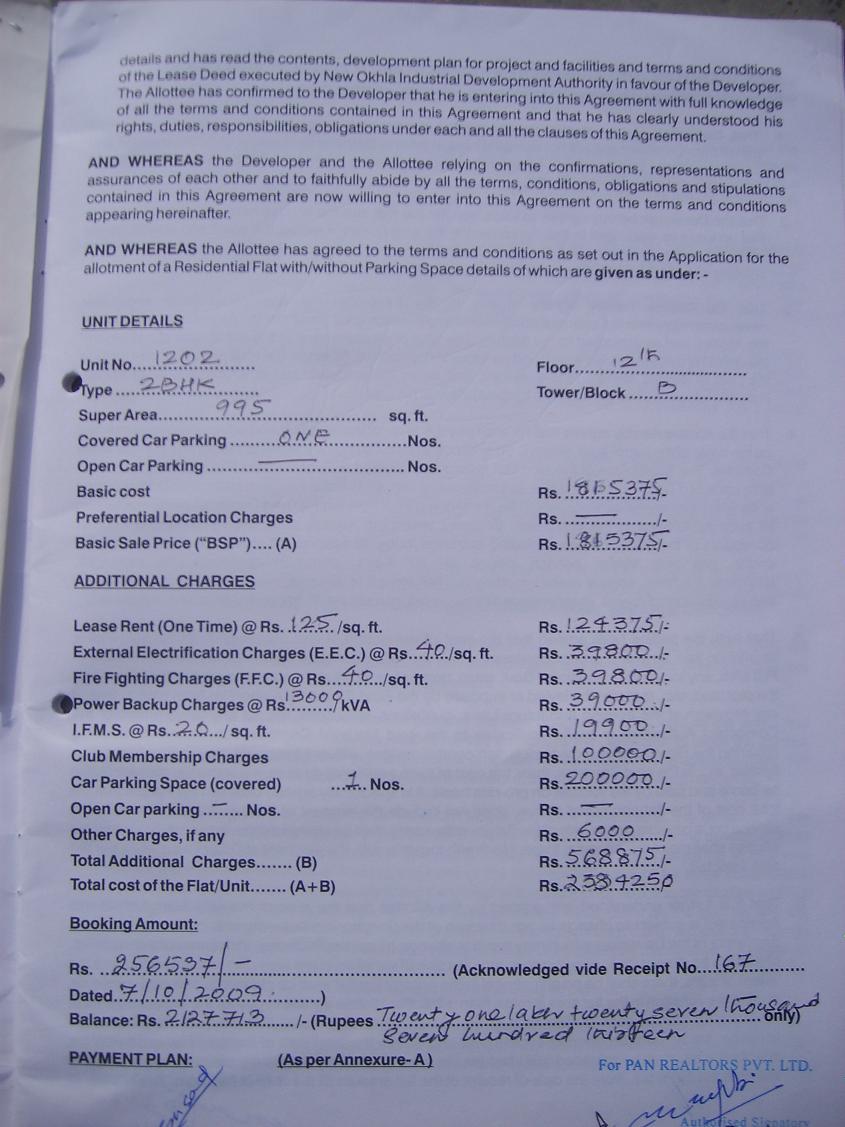 details and has read the contents, development plan for project and facilities and terms and conditions
of the Lease Deed executed by New Okhla Industrial Development Authority in favour of the Developer.
The Allottee has confirmed to the Developer that he is entering into this Agreement with full knowledge
of all the terms and conditions contained in this Agreement and that he has clearly understood his
rights, duties, responsibilities, obligations under each and all the clauses of this Agreement.
AND WHEREAS the Developer and the Allottee relying on the confirmations, representations and
assurances of each other and to faithfully abide by all the terms, conditions, obligations and stipulations
contained in this Agreement are now willing to enter into this Agreement on the terms and conditions
appearing hereinafter.
AND WHEREAS the Allottee has agreed to the terms and conditions as set out in the Application for the
allotment of a Residential Flat with/without Parking Space details of which are given as under: -
UNIT DETAILS
Unit No....1202.... Floor....12th....
Type ....2BHK.... Tower/Block ....B....
Super Area....995.... sq. ft.
Covered Car Parking ....ONE....Nos.
Open Car Parking ....—.... Nos.
Basic cost Rs. 1815375/-
Preferential Location Charges Rs. ....—..../-
Basic Sale Price (“BSP”).... (A) Rs. 1815375/-
ADDITIONAL CHARGES
Lease Rent (One Time) @ Rs. 125 /sq. ft. Rs. 124375/-
External Electrification Charges (E.E.C.) @ Rs. 40 /sq. ft. Rs. 39800/-
Fire Fighting Charges (F.F.C.) @ Rs. 40 /sq. ft. Rs. 39800/-
Power Backup Charges @ Rs 13000 /kVA Rs. 39000/-
I.F.M.S. @ Rs. 20 / sq. ft. Rs. 19900/-
Club Membership Charges Rs. 100000/-
Car Parking Space (covered) ...1.. Nos. Rs. 200000/-
Open Car parking ..—.. Nos. Rs. ....—..../-
Other Charges, if any Rs. 6000/-
Total Additional Charges....... (B) Rs. 568875/-
Total cost of the Flat/Unit....... (A+B) Rs. 2384250
Booking Amount:
Rs. 256537/- (Acknowledged vide Receipt No. 167
Dated 7/10/2009 )
Balance: Rs. 2127713 /- (Rupees Twenty one lakh twenty seven thousand only)
Seven hundred thirteen
PAYMENT PLAN: (As per Annexure- A )
For PAN REALTORS PVT. LTD.
Authorised Signatory